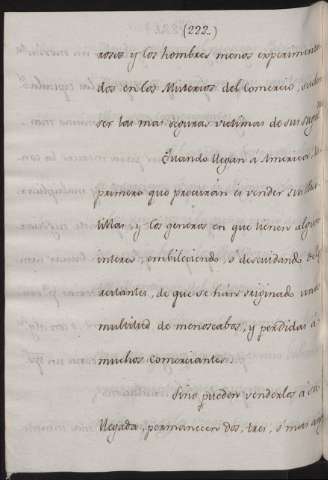 (222.)
rosos y los hombres menos experimenta
dos en los Misterios del Comercio, suelen
ser las mas seguras victimas de sus
Quando llegan á America, lo
primero que procuran és vender sus
y los generos en que tienen algun
interes, embileciendo, ó descuidando de los
restantes, de que se hán originado una
multitud de menoscabos, y perdidas á
muchos Comerciantes.
Sino pueden venderlos á su
llegada, permanecen dos, tres, ó mas